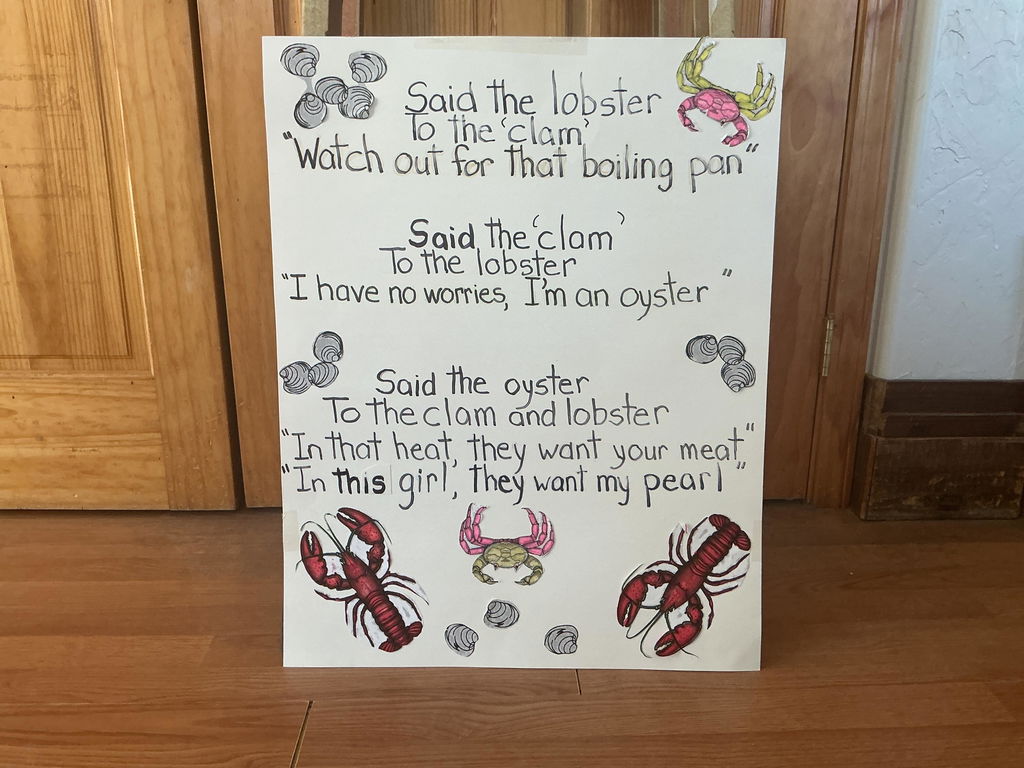 Said the lobster
To the 'clam'
"Watch out for that boiling pan"
Said the 'clam'
To the lobster
"I have no worries, I'm an oyster"
Said the oyster
To the clam and lobster
"In that heat, they want your meat"
"In this girl, they want my pearl"